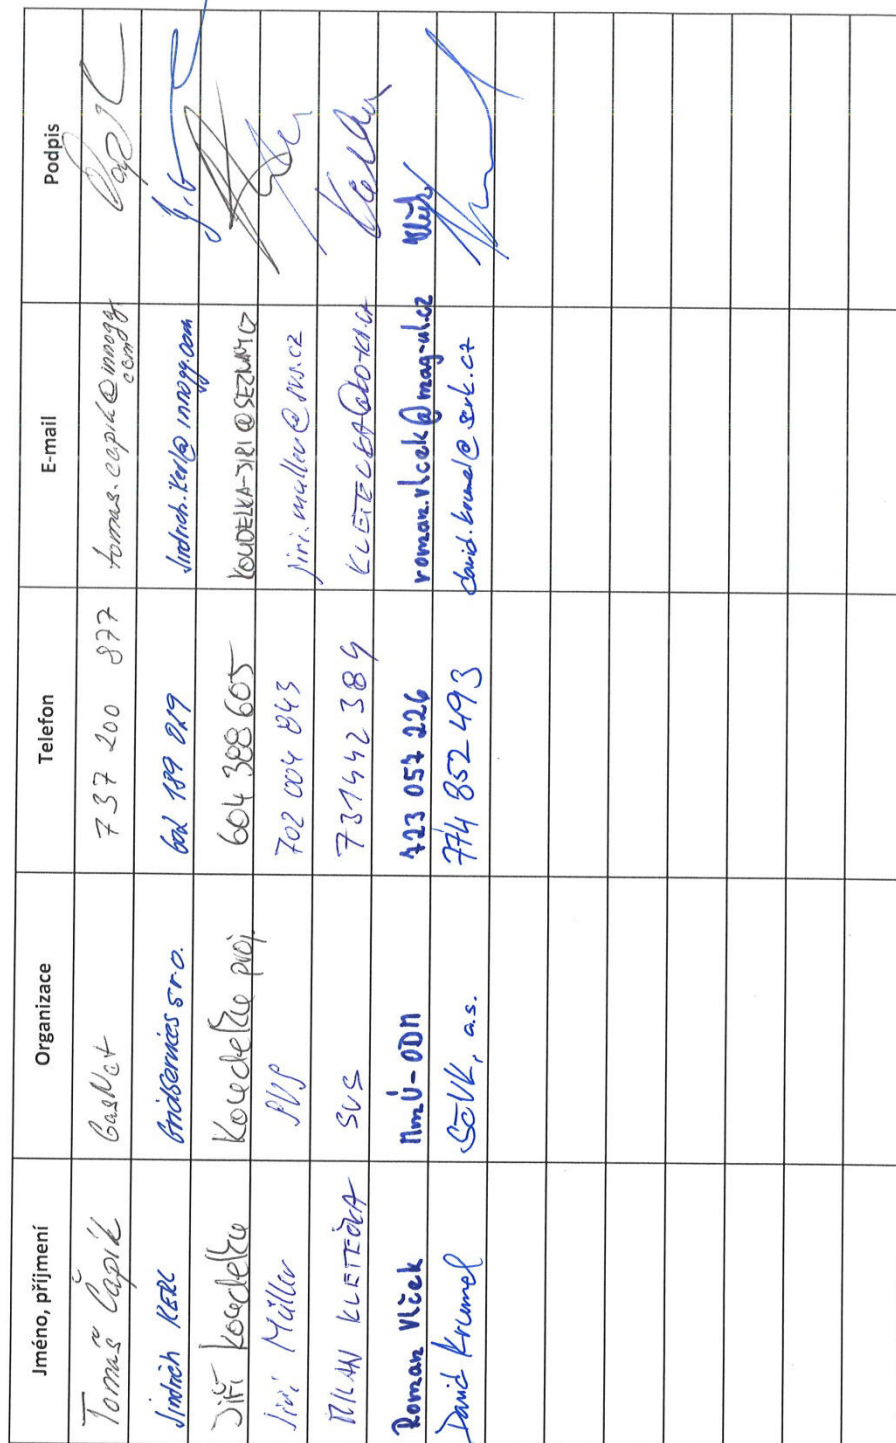 Jméno, příjmení Organizace Telefon E-mail Podpis
Tomáš Čapík GasNet 737 200 877 tomas.capik@innogy.com
Jindrich KERL GridServices s.r.o. 602 189 029 Jindrich.Kerl@innogy.com
Jiří Koudelka Koudelka proj. 604 388 605 KOUDELKA-JIRI@SEZNAM.CZ
Jiří Müller SVS 702 004 843 jiri.muller@svs.cz
MILAN KLETEČKA SVS 731442384
Roman Vlček MmÚ-ODM 723 057 226 roman.vlcek@mag-ul.cz
David Krumel SčVK, a.s. 774 852 493 david.krumel@scvk.cz